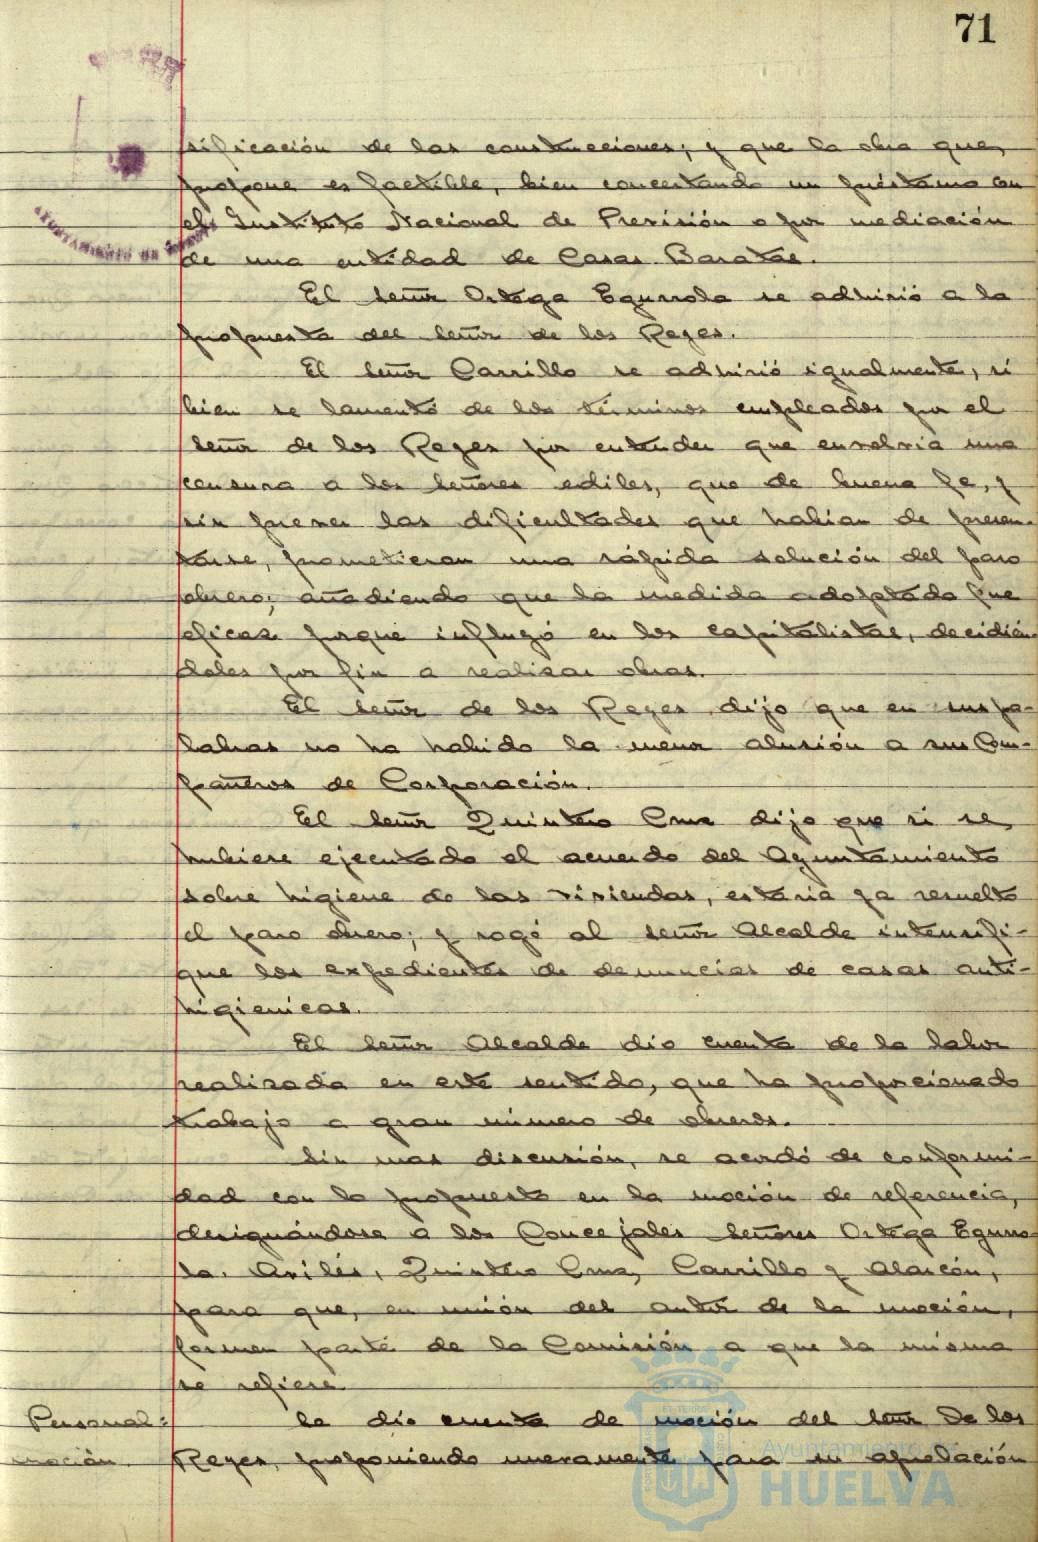 71
sificación de las construcciones; y que la obra que
propone es factible, bien concertando un préstamo con
el Instituto Nacional de Previsión o por mediación
de una entidad de Casas Baratas.
El señor Ortega Egurrola se adhirió a la
propuesta del señor de los Reyes.
El señor Carrillo se adhirió igualmente, si
bien se lamentó de los términos empleados por el
señor de los Reyes por entender que envolvia una
censura a los señores ediles, que de buena fe, y
sin preveer las dificultades que habian de presen-
tarse, prometieron una rápida solución del paro
obrero; añadiendo que la medida adoptada fue
eficaz porque influyó en los capitalistas, decidién-
doles por fin a realizar obras.
El señor de los Reyes dijo que en sus pa-
labras no ha habido la menor alusión a sus Com-
pañeros de Corporación.
El señor Quintero Cruz dijo que si se
hubiere ejecutado el acuerdo del Ayuntamiento
sobre higiene de las viviendas, estaria ya resuelto
el paro obrero; y rogó al señor Alcalde intensifi-
que los expedientes de denuncias de casas anti-
higienicas.
El señor Alcalde dio cuenta de la labor
realizada en este sentido, que ha proporcionado
trabajo a gran número de obreros.
Sin mas discusión, se acordó de conformi-
dad con lo propuesto en la moción de referencia,
designándose a los Concejales señores Ortega Egurro-
la, Avilés, Quintero Cruz, Carrillo y Alarcón,
para que, en unión del autor de la moción,
formen parte de la Comisión a que la misma
se refiere.
Personal: Se dio cuenta de moción del señor De los
moción. Reyes, proponiendo nuevamente para su aprobación
AYUNTAMIENTO DE HUELVA
Ayuntamiento de
HUELVA